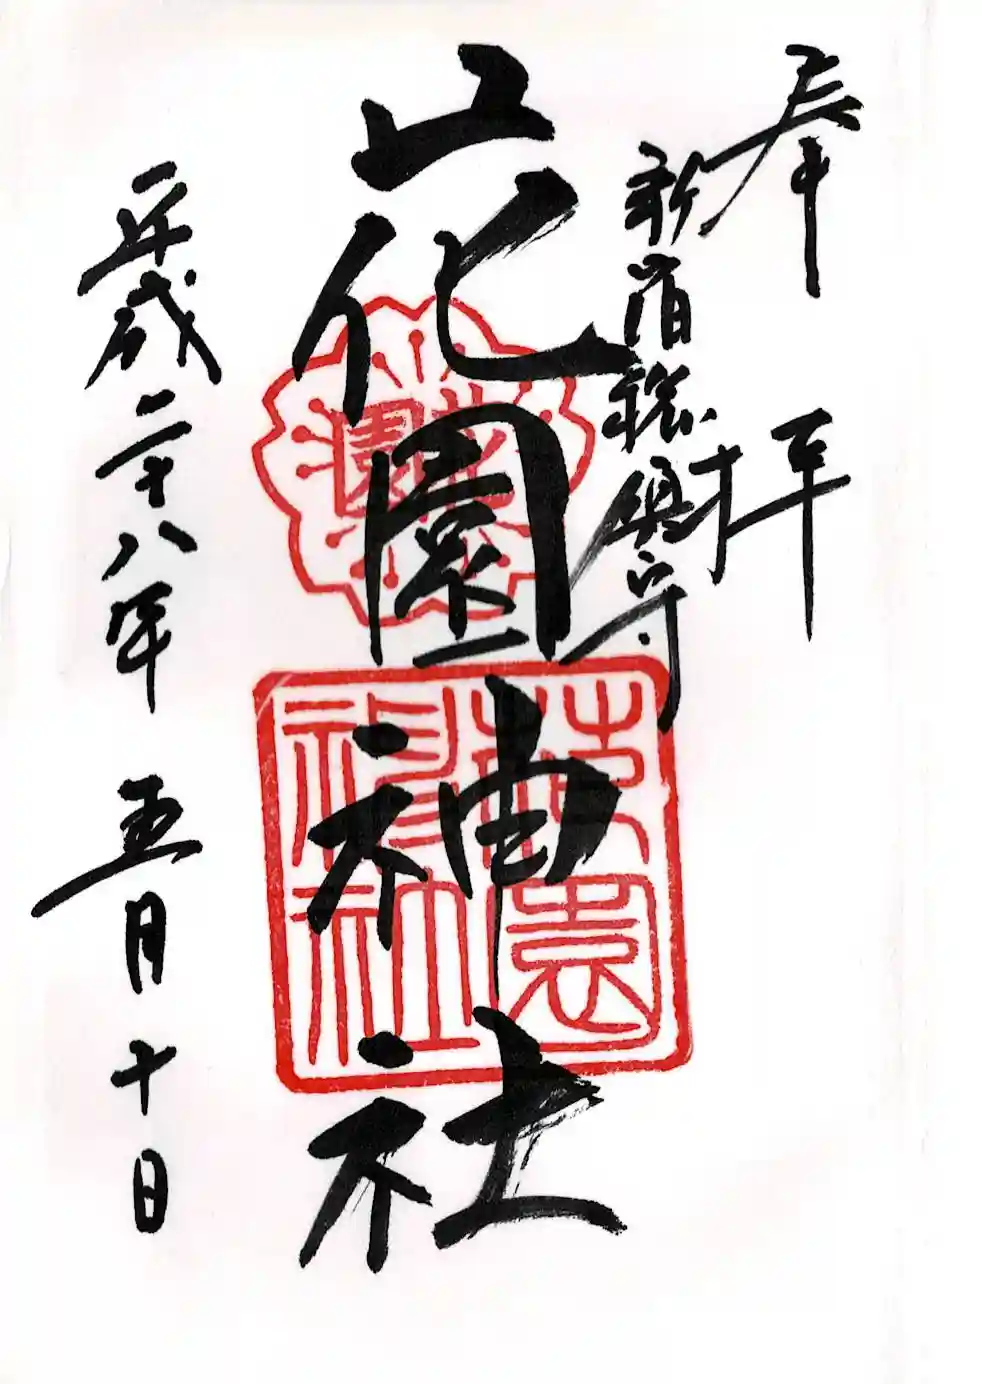 奉拝
新宿総鎮守
花園神社
花園
花園神社
平成二十八年 五月十日